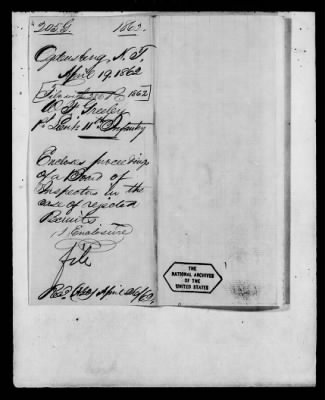 205 G. 1862.
Ogdensburg, N.Y.
April 19, 1862
File with 1862
Greeley
1st Lieut 11th Infantry
Encloses proceedings
of a Board of
Inspectors in the
case of rejected
Recruits.
1 Enclosure
file
Recd April 26/62.
THE
NATIONAL ARCHIVES
OF THE
UNITED STATES